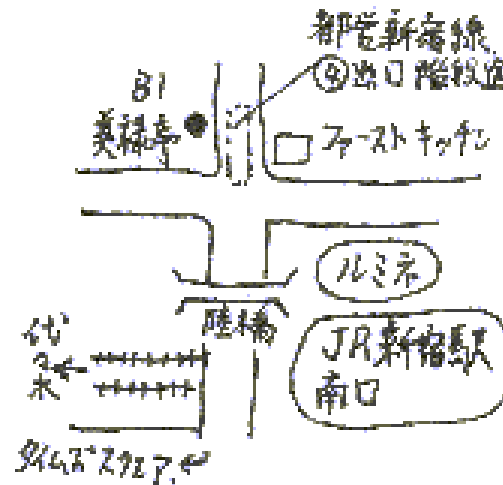 都営新宿線
④出口階段
B1
美禄亭
ファーストキッチン
ルミネ
陸橋
JR新宿駅
南口
代々木←
タイムズスクエア